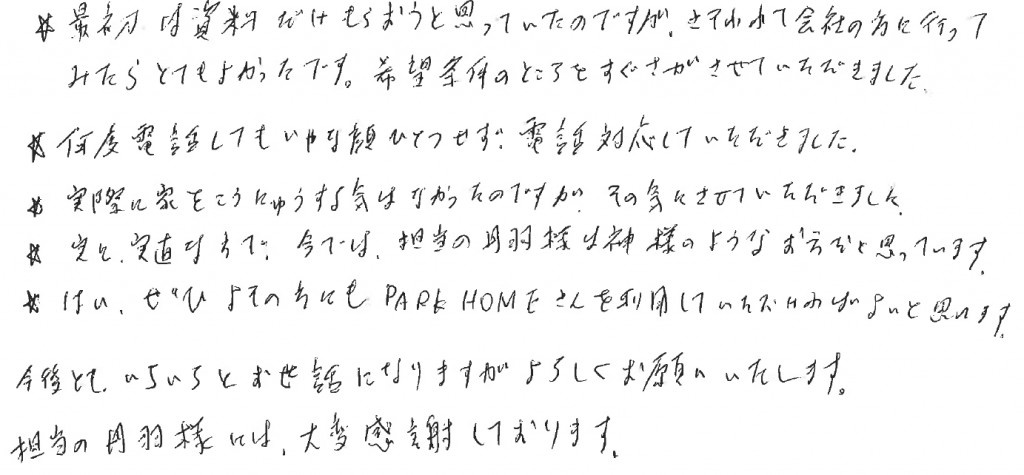 * 最初は資料だけもらおうと思っていたのですが、さそわれて会社の方に行って
みたらとてもよかったです。希望条件のところをすぐさがさせていただきました。
* 何度電話してもいやな顔ひとつせず、電話対応していただきました。
* 実際に家をこうにゅうする気はなかったのですが、その気にさせていただきました。
* 実直な方で、今では、担当の丹羽様は神様のようなお方だと思っています。
* はい、ぜひよその方にもPARK HOMEさんを利用していただければよいと思います。
今後とも、いろいろとお世話になりますがよろしくお願いいたします。
担当の丹羽様には、大変感謝しております。